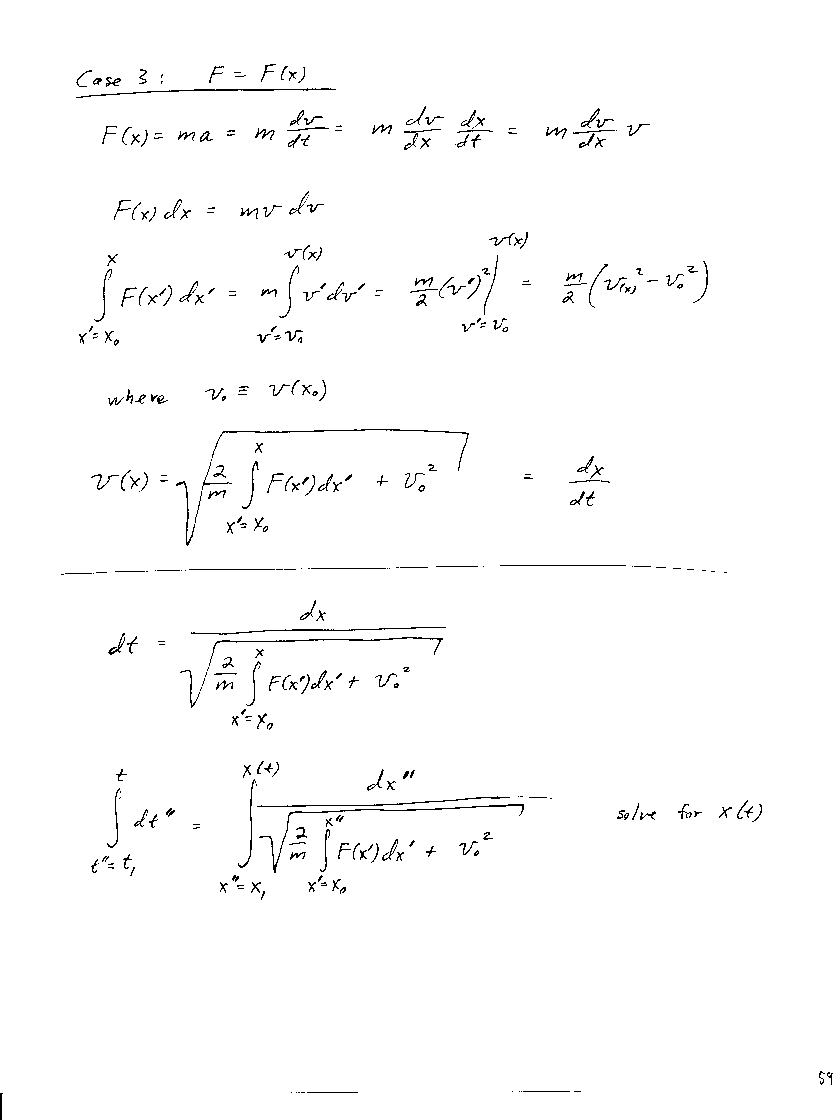 Case 3 : F = F(x)
F(x) = ma = m dv/dt = m dv/dx dx/dt = m dv/dx v
F(x) dx = mv dv
∫_{x'=x₀}^{x} F(x') dx' = m ∫_{v'=v₀}^{v(x)} v' dv' = m/2 (v')² |_{v'=v₀}^{v(x)} = m/2 (v(x)² - v₀²)
where v₀ ≡ v(x₀)
v(x) = √(2/m ∫_{x'=x₀}^{x} F(x') dx' + v₀²) = dx/dt
dt = dx / √(2/m ∫_{x'=x₀}^{x} F(x') dx' + v₀²)
∫_{t"=t₁}^{t} dt" = ∫_{x"=x₁}^{x(t)} dx" / √(2/m ∫_{x'=x₀}^{x"} F(x') dx' + v₀²) solve for x(t)
59